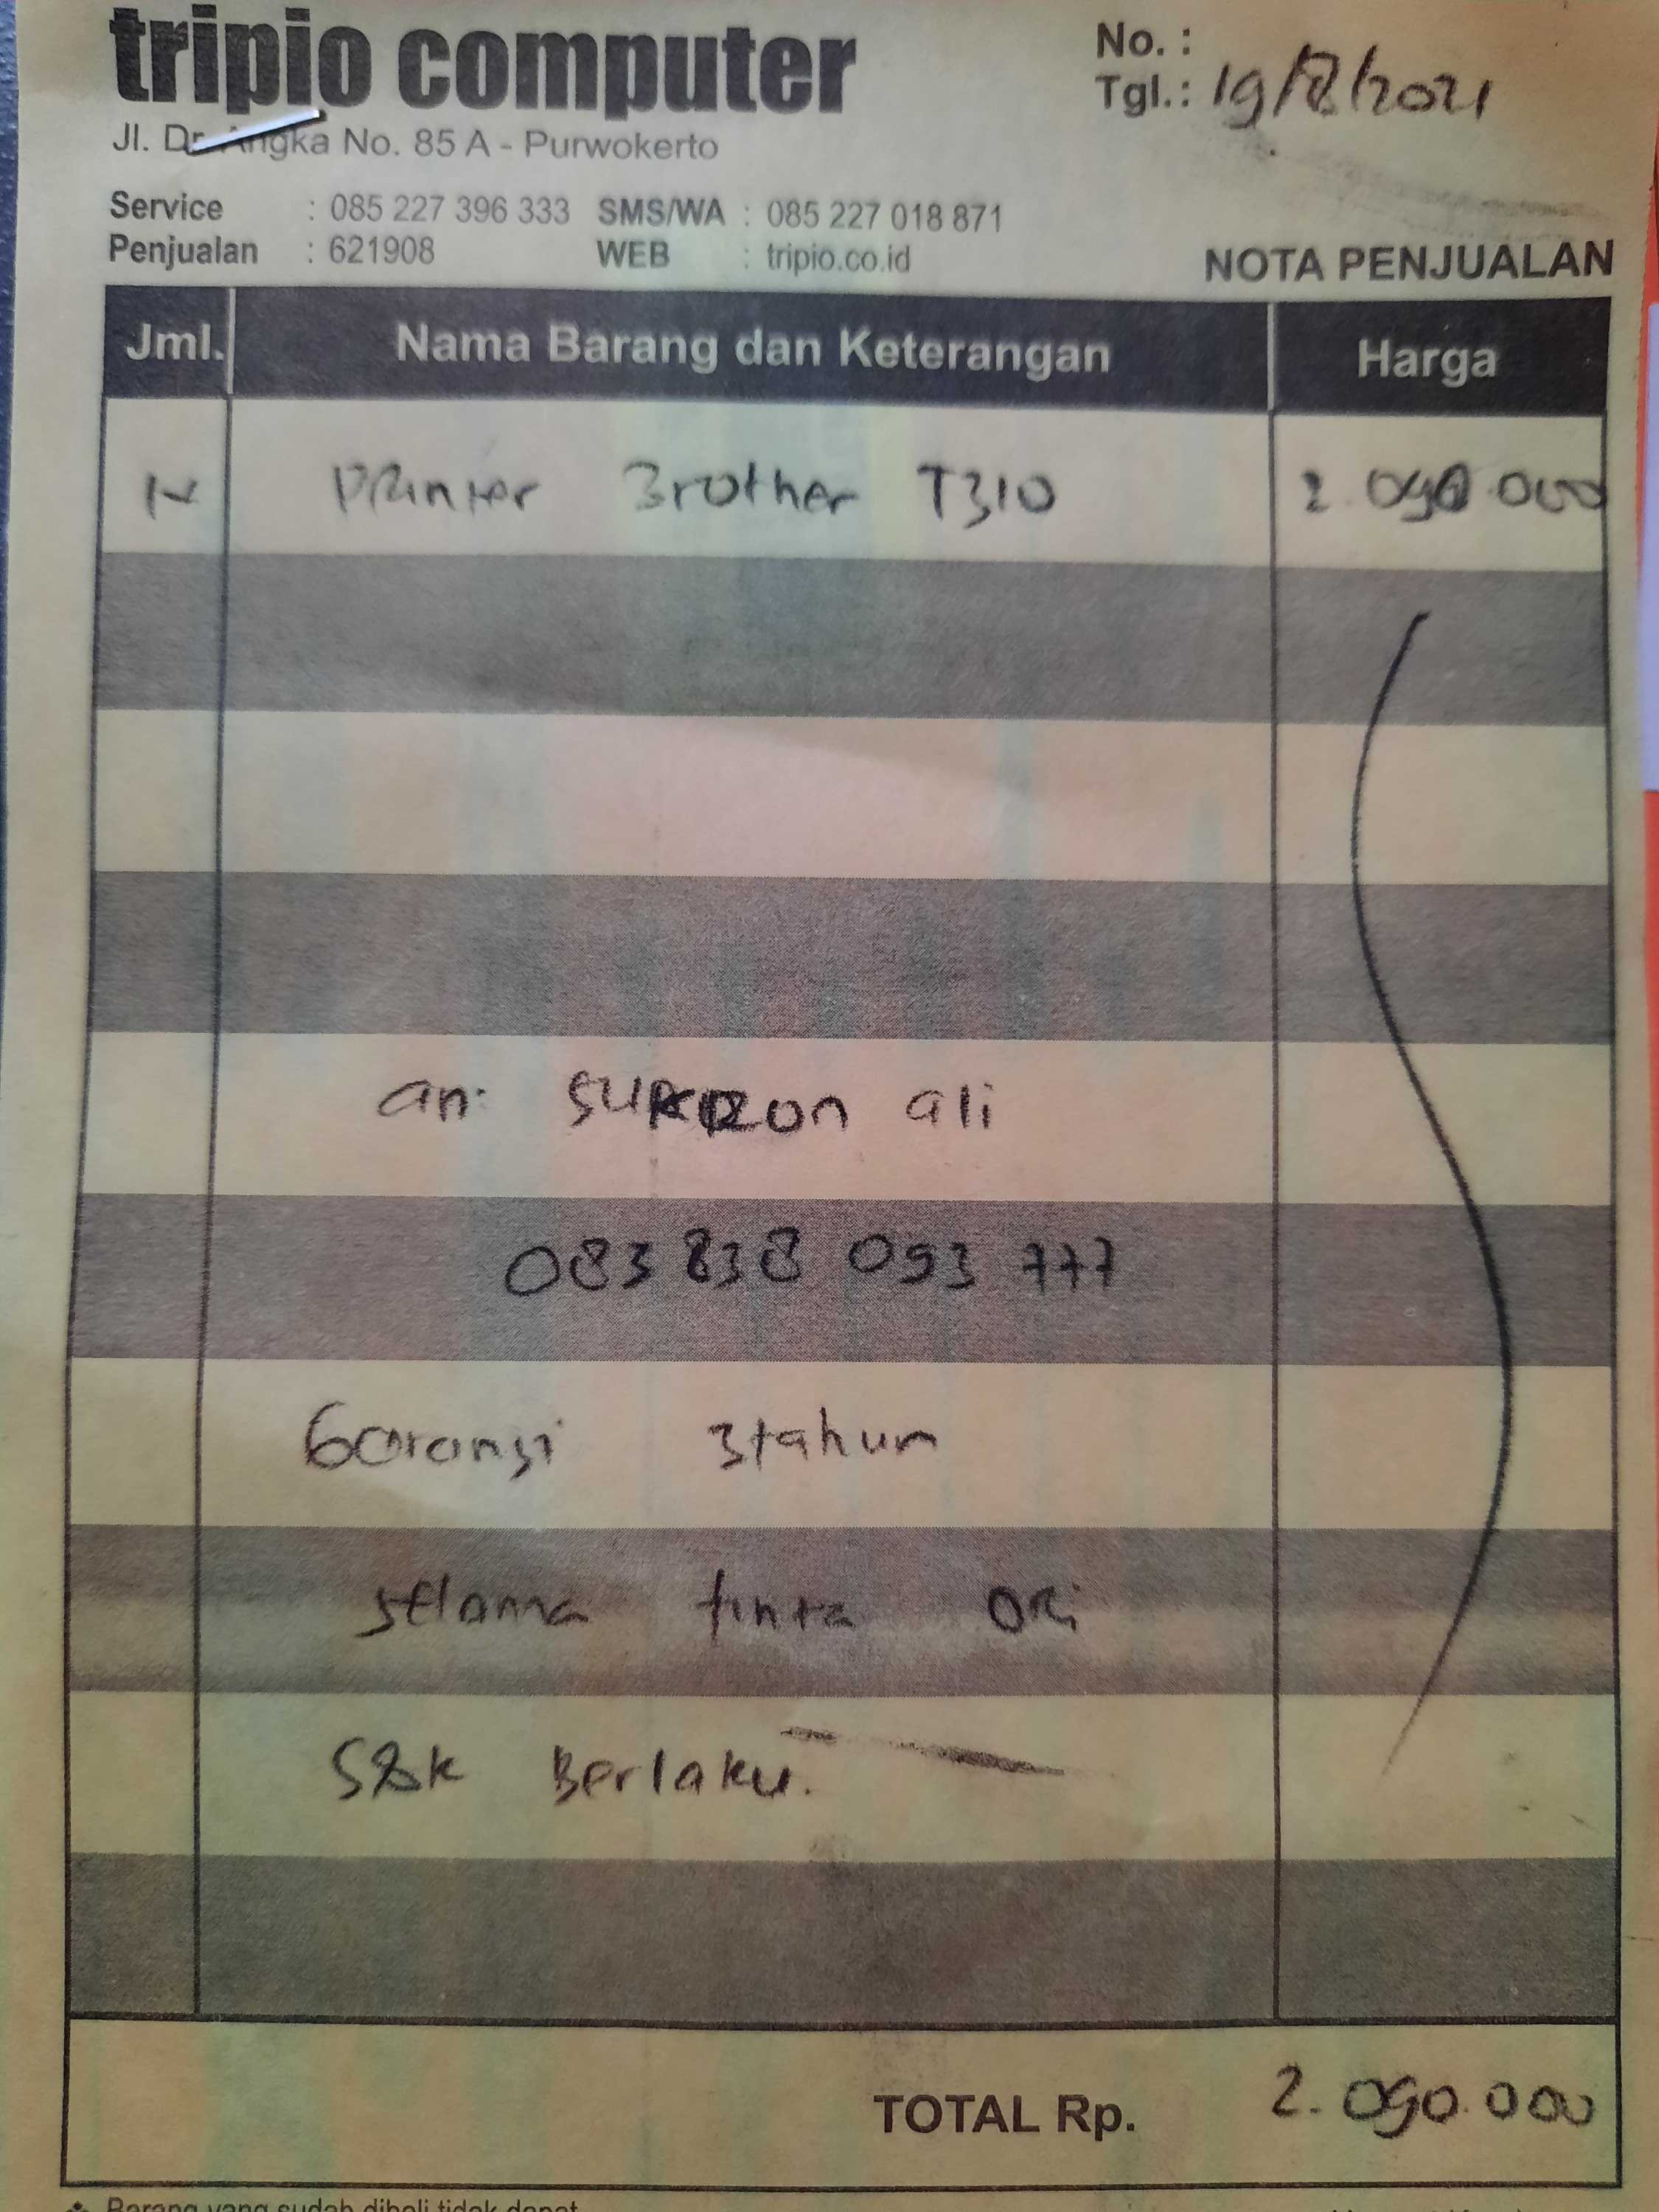 tripio computer
No. :
Tgl. : 19/8/2021
Jl. Dr. Angka No. 85 A - Purwokerto
Service : 085 227 396 333 SMS/WA : 085 227 018 871
Penjualan : 621908 WEB : tripio.co.id
NOTA PENJUALAN
Jml. Nama Barang dan Keterangan Harga
Printer Brother T310 2.090.000
an. ali
083 838 093 777
Garansi 3 tahun
selama tinta ori
S&k Berlaku.
TOTAL Rp. 2.090.000
Barang yang sudah dibeli tidak dapat